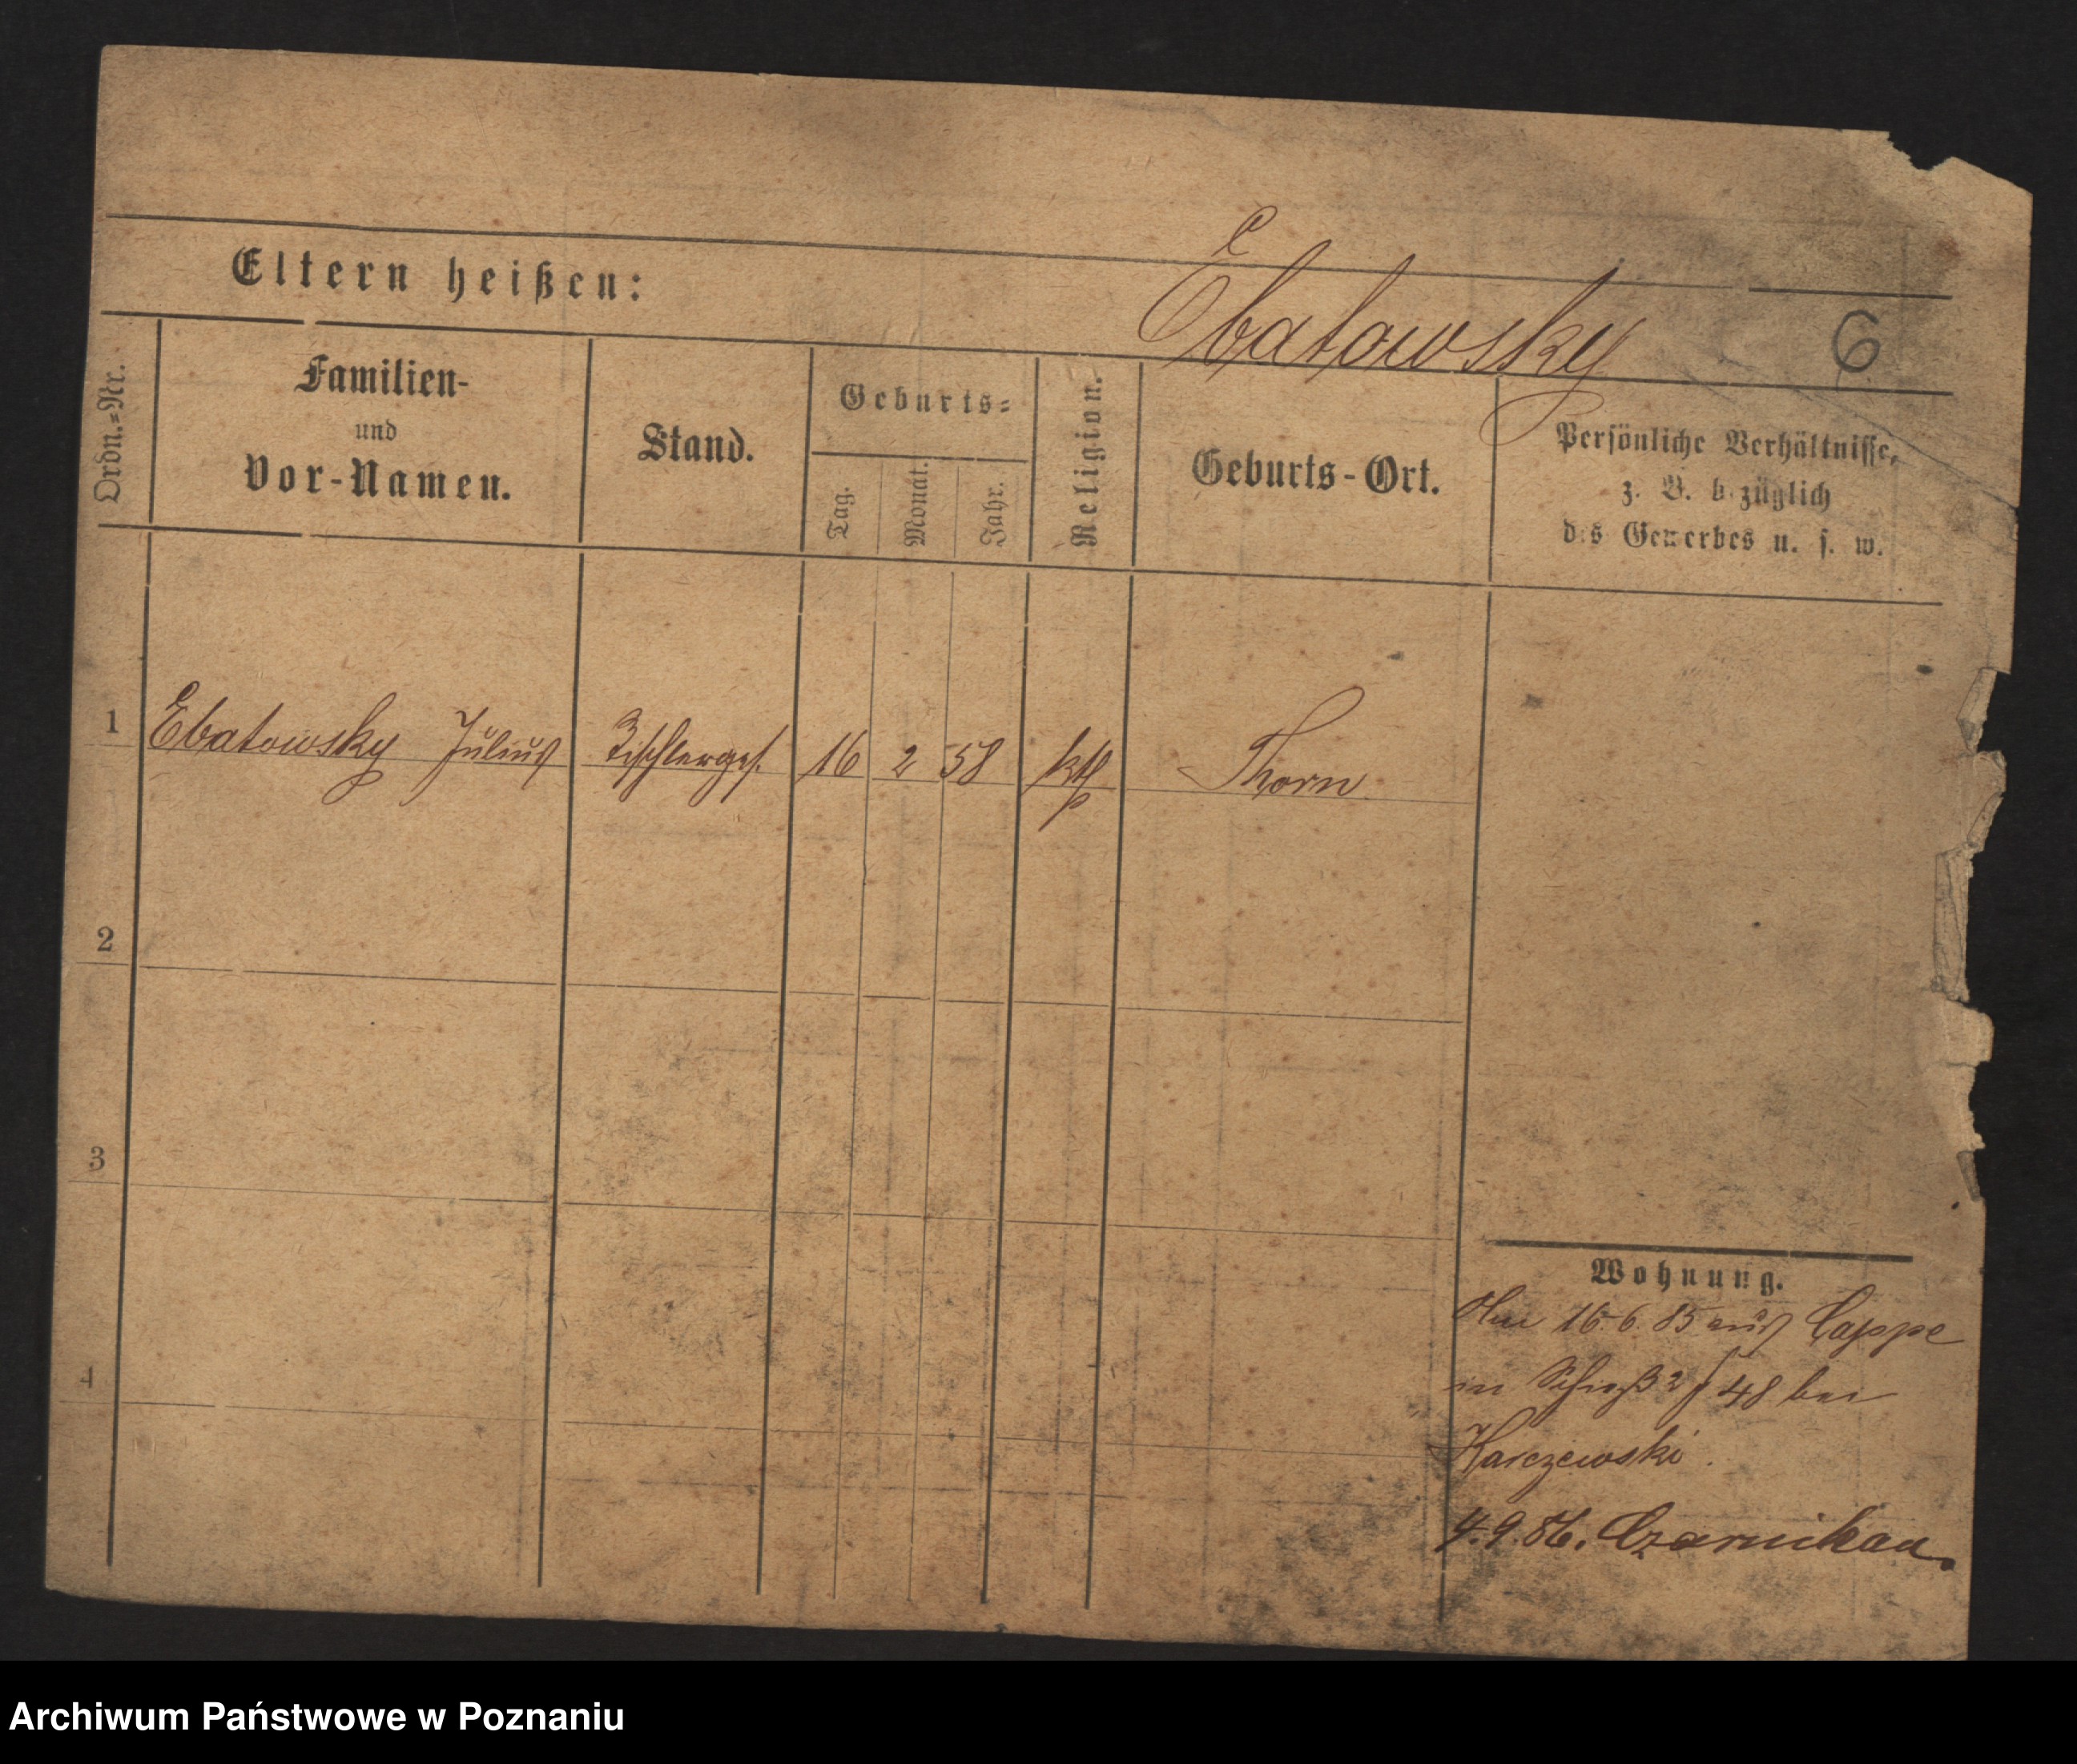 Eltern heißen:
Ebatowsky
6
Ordn.=Nr.
Familien-
und
Vor-Namen.
Stand.
Geburts=
Tag.
Monat.
Jahr.
Religion.
Geburts-Ort.
Persönliche Verhältnisse,
z. B. bezüglich
des Gewerbes u. s. w.
1 Ebatowsky Julius Tischlerges. 16 2 58 kth Thorn
2
3
4
Wohnung.
16.6.85 aus Cappe
in 48 bei
Karczewski.
4.9.86. Czarnikau.
Archiwum Państwowe w Poznaniu